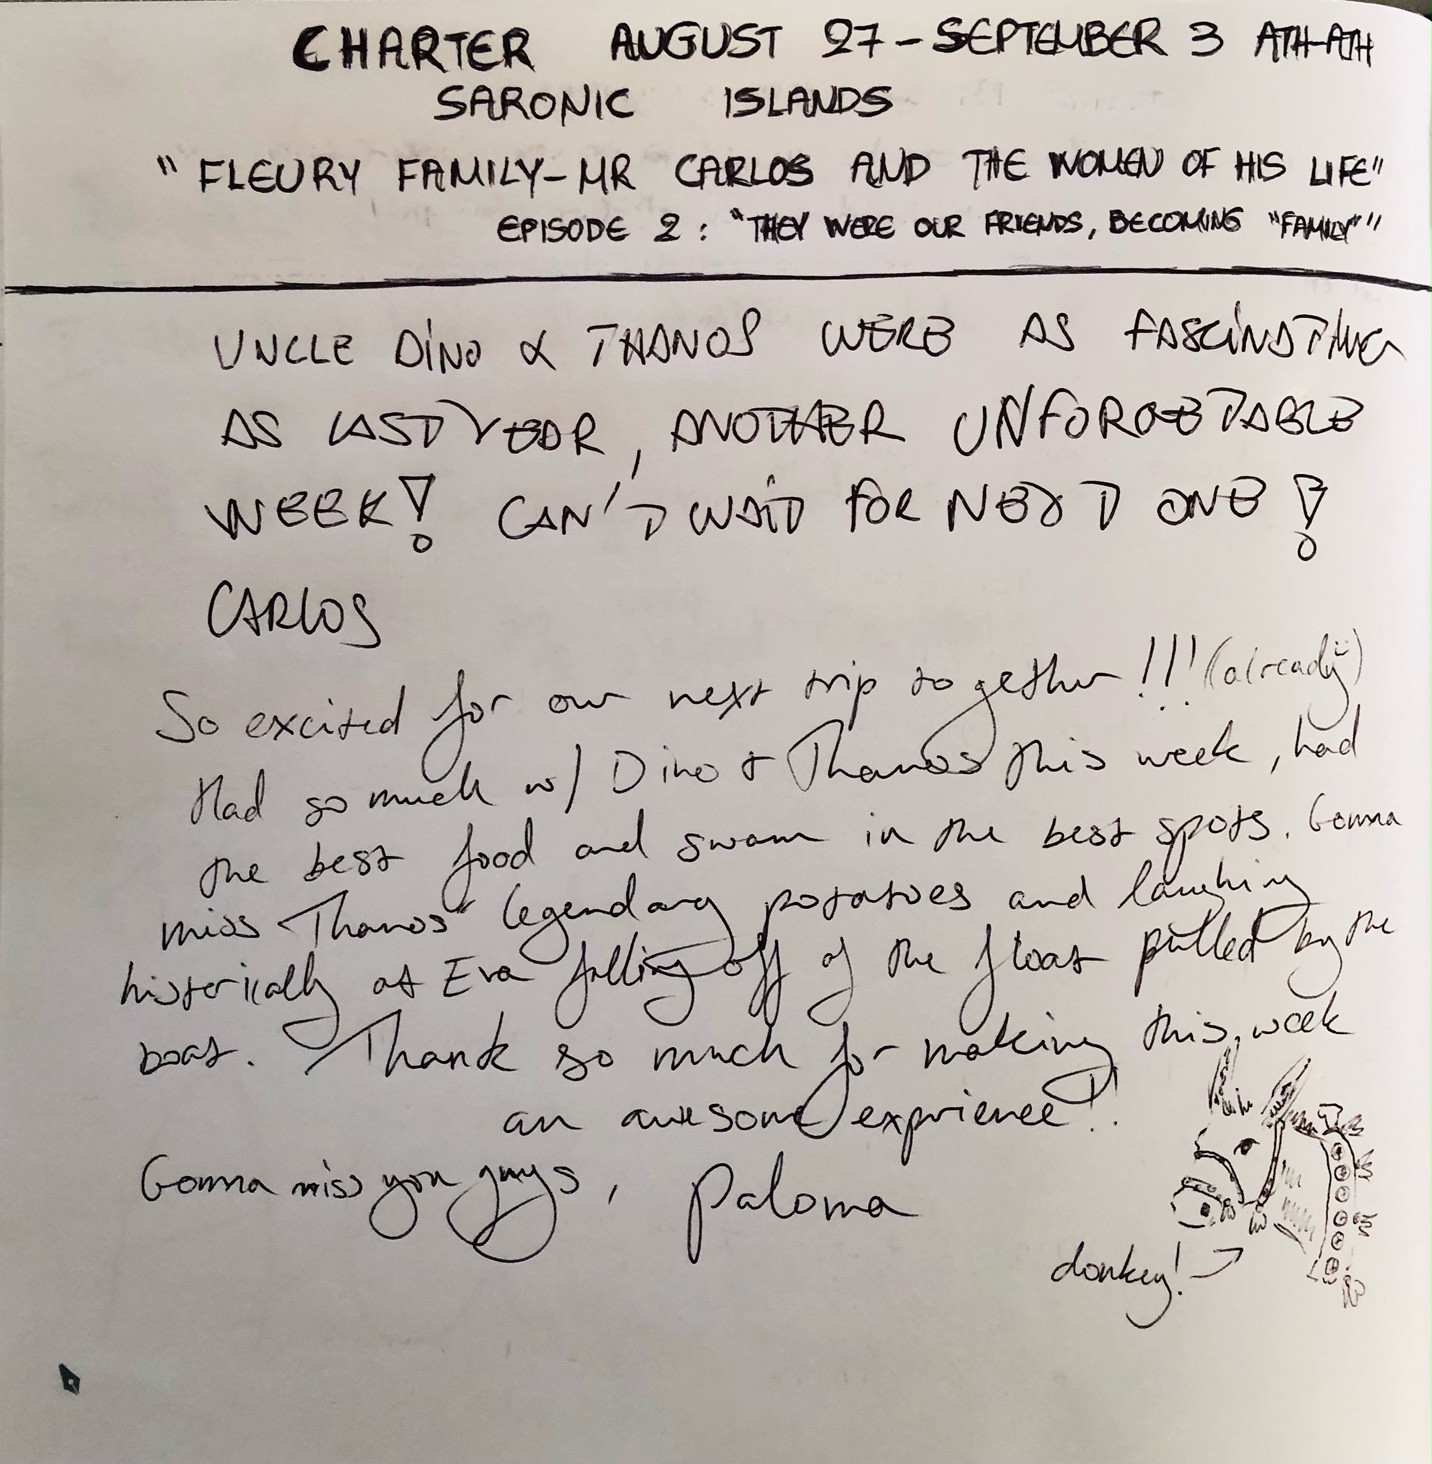 CHARTER AUGUST 27-SEPTEMBER 3 ATH-ATH
SARONIC ISLANDS
"FLEURY FAMILY-MR CARLOS AND THE WOMEN OF HIS LIFE"
EPISODE 2: "THEY WERE OUR FRIENDS, BECOMING "FAMILY""
UNCLE DiNO & THANOS WERE AS FASCiNATiNG
AS LAST YEAR, ANOTHER UNFORGETABLE
WEEK! CAN'T WAiT FOR NEXT ONE!
CARLOS
So excited for our next trip together!!! (already)
Had so much w/ Dino & Thanos this week, had
the best food and swam in the best spots. Gonna
miss Thanos' legendary potatoes and laughing
histerically at Eva falling off of the float pulled by the
boat. Thank so much for making this week
an awesome exprience!!
Gonna miss you guys, Paloma
donkey!